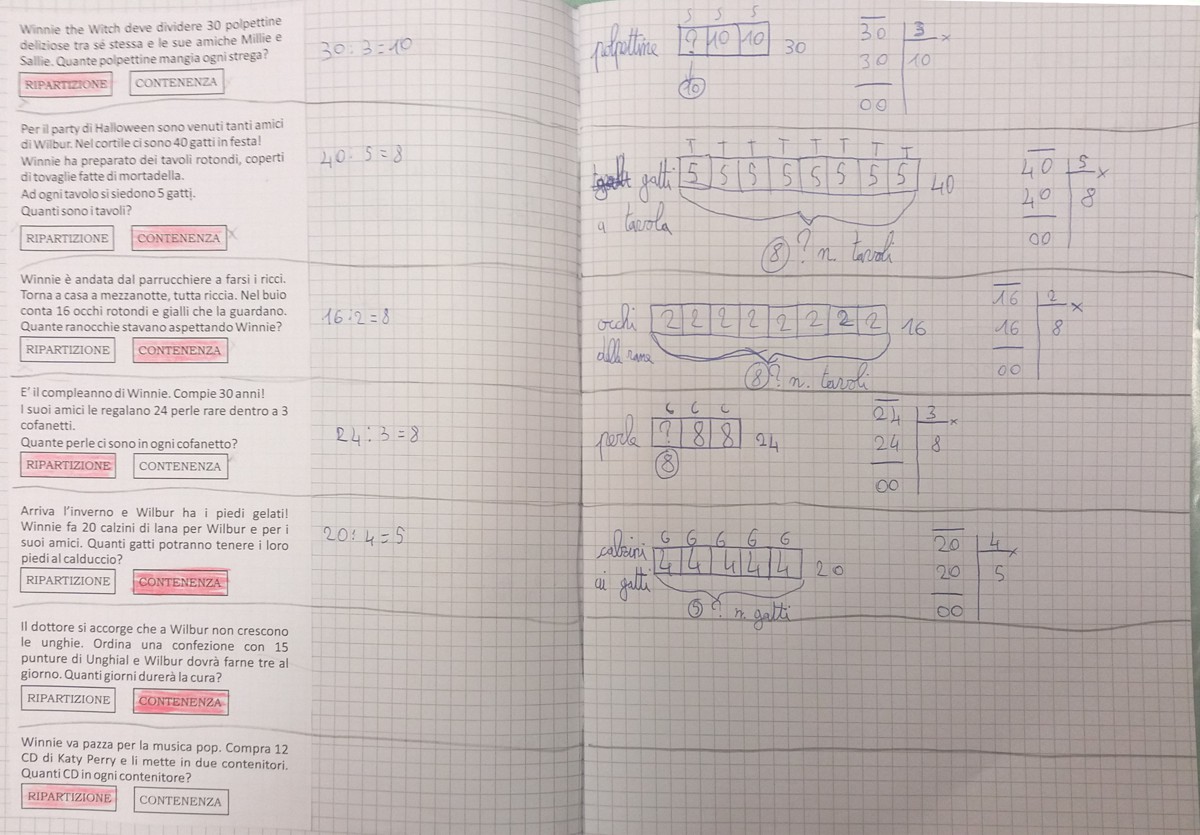 Winnie the Witch deve dividere 30 polpettine
deliziose tra sé stessa e le sue amiche Millie e
Sallie. Quante polpettine mangia ogni strega?
RIPARTIZIONE CONTENENZA
30:3=10
S S S
polpettine ? 10 10 30
10
30 3 x
30 10
00
Per il party di Halloween sono venuti tanti amici
di Wilbur. Nel cortile ci sono 40 gatti in festa!
Winnie ha preparato dei tavoli rotondi, coperti
di tovaglie fatte di mortadella.
Ad ogni tavolo si siedono 5 gatti.
Quanti sono i tavoli?
RIPARTIZIONE CONTENENZA x
40:5=8
T T T T T T T T
gatti 5 5 5 5 5 5 5 5 40
a tavola
8 ? n. tavoli
40 5 x
40 8
00
Winnie è andata dal parrucchiere a farsi i ricci.
Torna a casa a mezzanotte, tutta riccia. Nel buio
conta 16 occhi rotondi e gialli che la guardano.
Quante ranocchie stavano aspettando Winnie?
RIPARTIZIONE CONTENENZA
16:2=8
occhi 2 2 2 2 2 2 2 2 16
delle rane
8 ? n. tavoli
16 2 x
16 8
00
E' il compleanno di Winnie. Compie 30 anni!
I suoi amici le regalano 24 perle rare dentro a 3
cofanetti.
Quante perle ci sono in ogni cofanetto?
RIPARTIZIONE CONTENENZA
24:3=8
C C C
perle ? 8 8 24
8
24 3 x
24 8
00
Arriva l'inverno e Wilbur ha i piedi gelati!
Winnie fa 20 calzini di lana per Wilbur e per i
suoi amici. Quanti gatti potranno tenere i loro
piedi al calduccio?
RIPARTIZIONE CONTENENZA
20:4=5
G G G G G
calzini 4 4 4 4 4 20
ai gatti
5 ? n. gatti
20 4 x
20 5
00
Il dottore si accorge che a Wilbur non crescono
le unghie. Ordina una confezione con 15
punture di Unghial e Wilbur dovrà farne tre al
giorno. Quanti giorni durerà la cura?
RIPARTIZIONE CONTENENZA
Winnie va pazza per la musica pop. Compra 12
CD di Katy Perry e li mette in due contenitori.
Quanti CD in ogni contenitore?
RIPARTIZIONE CONTENENZA